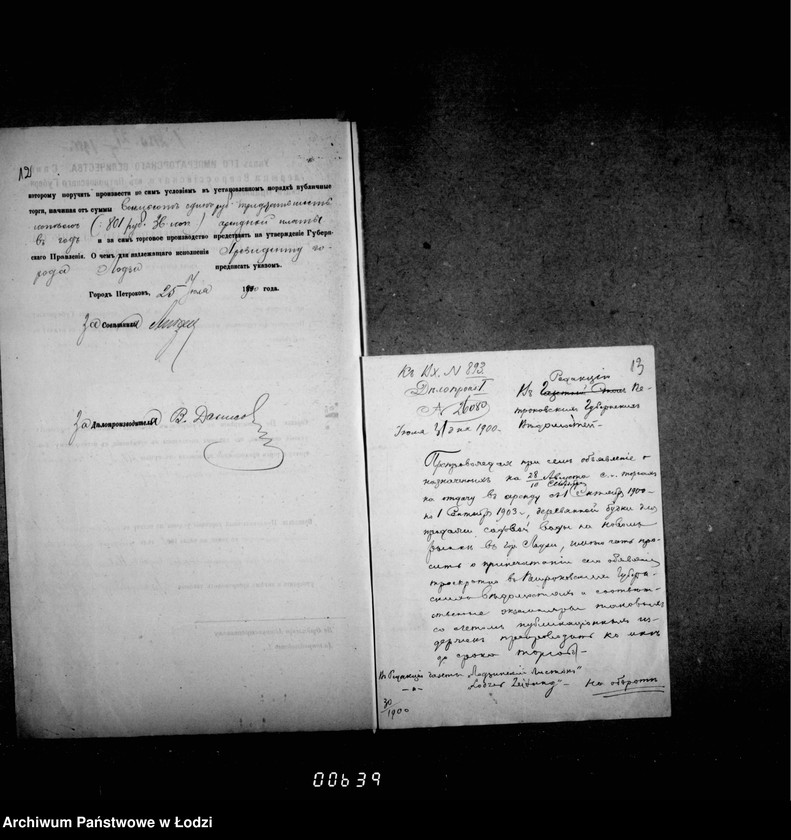 12
которому поручить произвести по симъ условіямъ въ установленномъ порядкѣ публичные
торги, начиная отъ суммы Восьмисотъ одного руб. тридцати шести
копѣекъ (: 801 руб. 36 коп :) арендной платы
въ годъ и за симъ торговое производство представить на утвержденіе Губерн-
скаго Правленія. О чемъ для надлежащаго исполненія Президенту го-
рода Лодзи предписать указомъ.
Городъ Петроковъ, 25 Іюля 1900 года.
За Совѣтника
За Дѣлопроизводителя В. Данисов
13
Къ Вх. N 893
Дѣлопроиз. I
N 26080
Іюля 31 дня 1900.
Редакціи
Въ Пе-
троковскихъ Губернскихъ
Вѣдомостей.
Препровождая при семъ объявленіе о
назначенныхъ на 28 Августа / 10 Сентября с.г. торгахъ
на отдачу въ аренду съ 1 Октября 1900
по 1 Октября 1903 г. деревянной будки для
продажи содовой воды на Новомъ
рынкѣ въ гор. Лодзи, имѣю честь про-
сить о припечатаніи сего объявленія
троекратно въ Петроковскихъ Губерн-
скихъ Вѣдомостяхъ и соотвѣт-
ственные экземпляры таковыхъ
со счетомъ публикаціонныхъ из-
держекъ препроводить ко мнѣ
до срока торговъ.
Въ Редакцію газеты „Лодзинскій Листокъ"
—„— „Lodzer Zeitung" На оборотѣ
30/1900
00639
Archiwum Państwowe w Łodzi